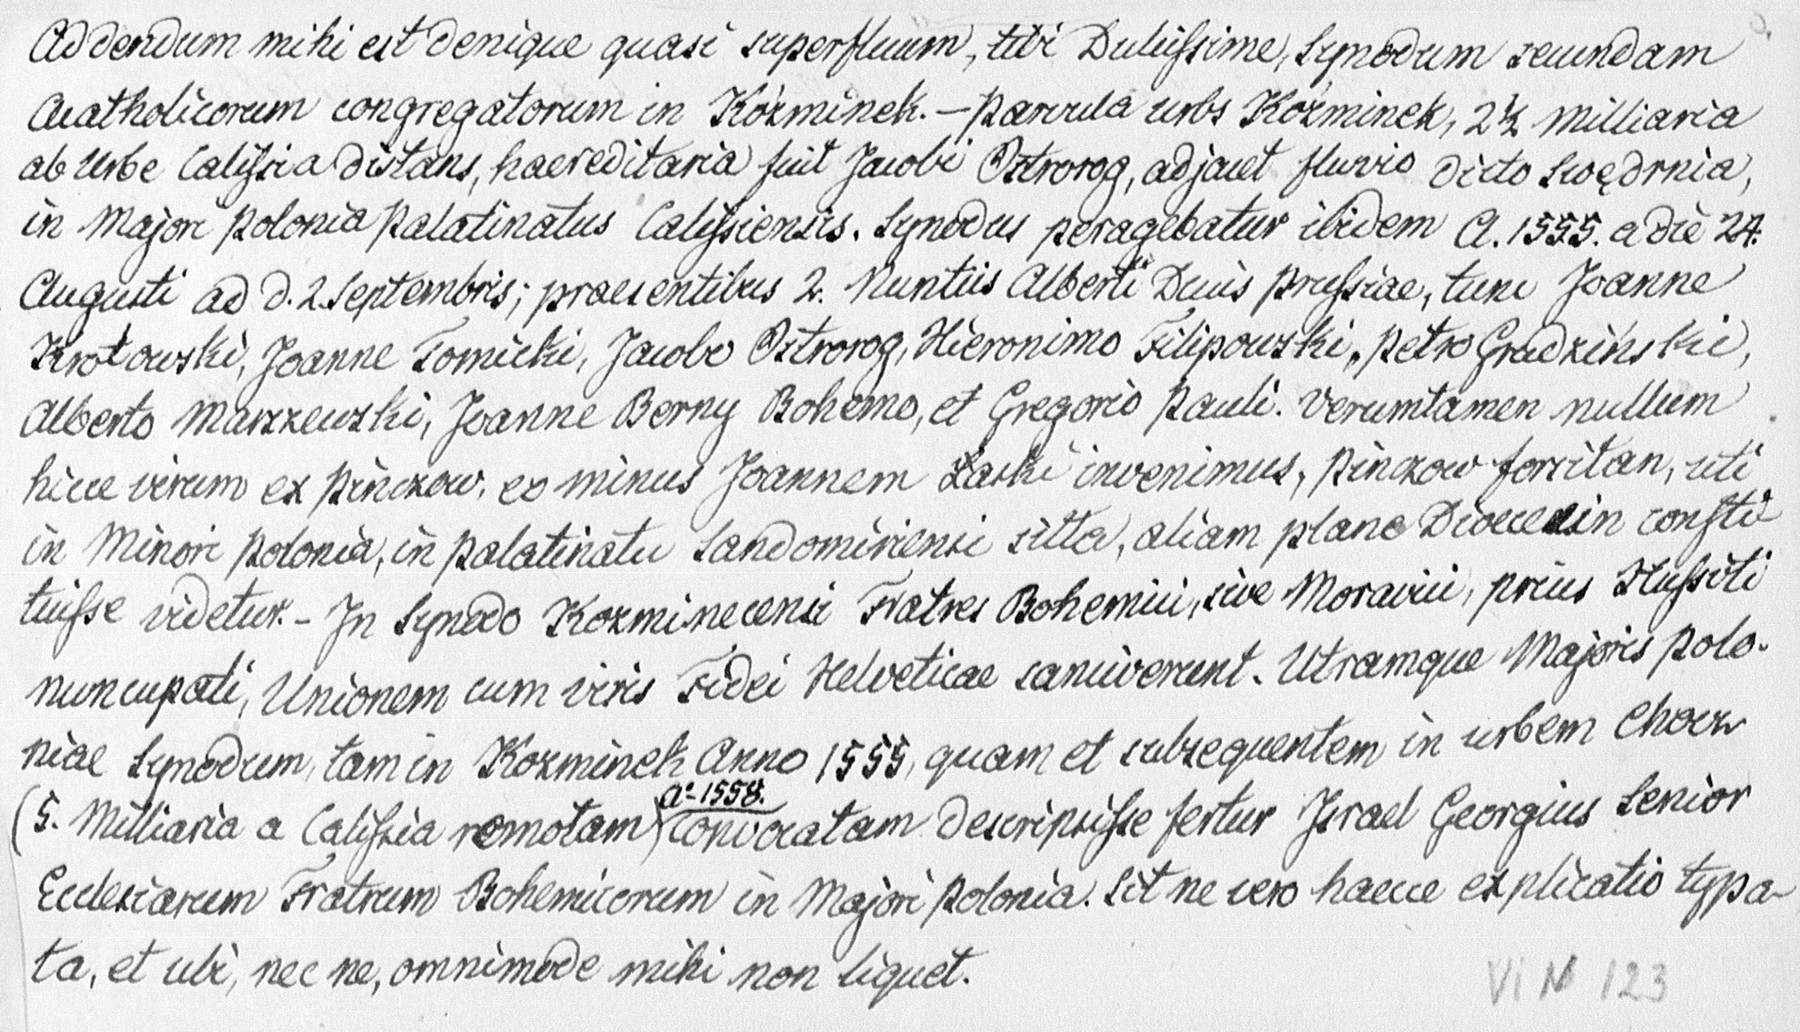 Addendum mihi est denique quasi superfluum, tibi Dulcissime, Synodum secundam
Acatholicorum congregatorum in Koźminek. – Parvula urbs Koźminek, 2½ Milliaria
ab Urbe Calissia distans, haereditaria fuit Jacobi Ostrorog, adjacet fluvio dicto Swędrnia,
in Majori Polonia Palatinatus Calissiensis. Synodus peragebatur ibidem A. 1555. a die 24.
Augusti ad d. 2. Septembris; praesentibus 2. Nuntiis Alberti Ducis Prussiae, tunc Joanne
Krotowski, Joanne Tomicki, Jacobo Ostrorog, Hieronimo Filipowski, Petro Grudziński,
Alberto Marszewski, Joanne Berny Bohemo, et Gregorio Pauli. Verumtamen nullum
hicce virum ex Pinczow, eo minus Joannem Łaski invenimus, Pinczow forsitan, uti
in Minori Polonia, in Palatinatu Sandomiriensi sitta, aliam plane Dioecesin consti
tuisse videtur. – In Synodo Kozminecensi Fratres Bohemici, sive Moravici, prius Hussiti
nuncupati, Unionem cum viris Fidei Helveticae sanciverunt. Utramque Majoris Polo-
niae Synodum, tam in Kozminek Anno 1555, quam et subsequentem in urbem Chocz
aº 1558.
(5. Milliaria a Calissia remotam) convocatam descripsisse fertur Israel Georgius Senior
Ecclesiarum Fratrum Bohemicorum in Majori Polonia. Sit ne vero haecce explicatio typa-
ta, et ubi, nec ne, omnimode mihi non liquet.
VI N 123